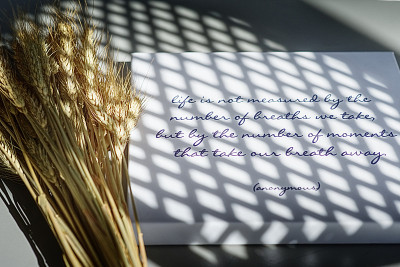 life is not measured by the
number of breaths we take,
but by the number of moments
that take our breath away.
(anonymous)